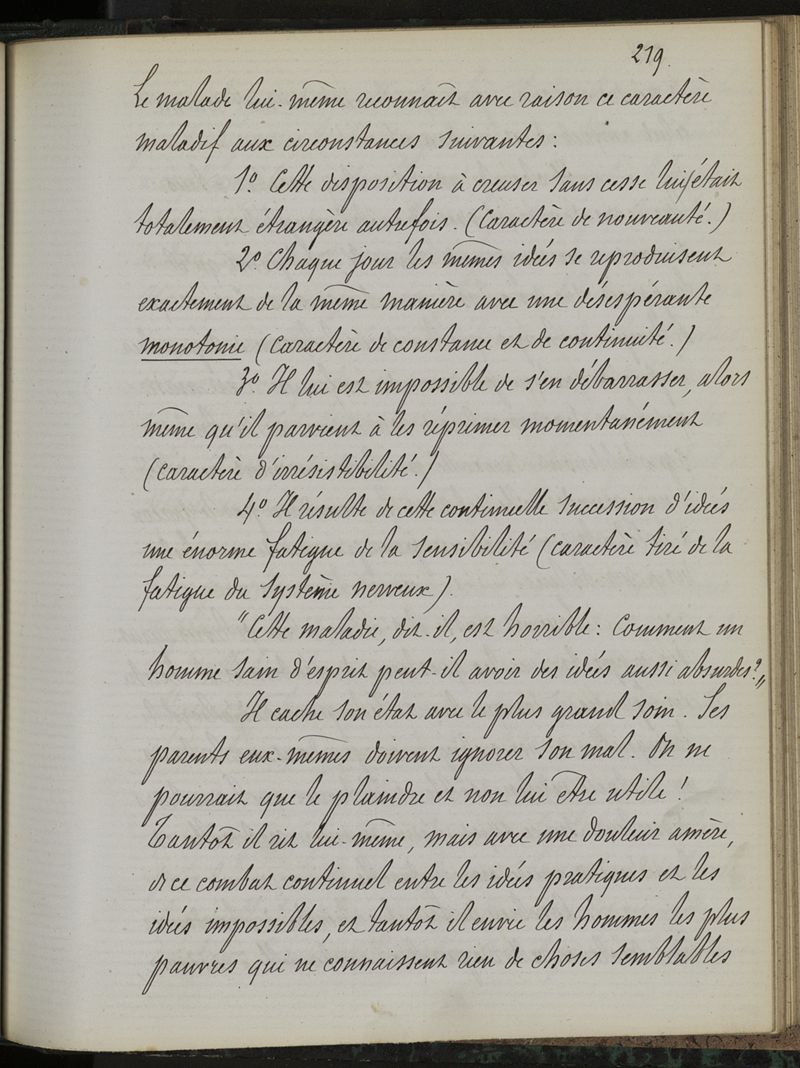 219.
Le malade lui-même reconnaît avec raison ce caractère
maladif aux circonstances suivantes :
1º Cette disposition à creuser sans cesse lui était
totalement étrangère autrefois. (Caractère de nouveauté.)
2º Chaque jour les mêmes idées se reproduisent
exactement de la même manière avec une désespérante
monotonie (Caractère de constance et de continuité.)
3º Il lui est impossible de s'en débarrasser, alors
même qu'il parvient à les réprimer momentanément
(Caractère d'irrésistibilité.)
4º Il résulte de cette continuelle succession d'idées
une énorme fatigue de la sensibilité (Caractère tiré de la
fatigue du système nerveux).
"Cette maladie, dit-il, est horrible : Comment un
homme sain d'esprit peut-il avoir des idées aussi absurdes ?"
Il cache son état avec le plus grand soin. Ses
parents eux-mêmes doivent ignorer son mal. On ne
pourrait que le plaindre et non lui être utile !
Tantôt il rit lui-même, mais avec une douleur amère,
de ce combat continuel entre les idées pratiques et les
idées impossibles, et tantôt il envie les hommes les plus
pauvres qui ne connaissent rien de choses semblables